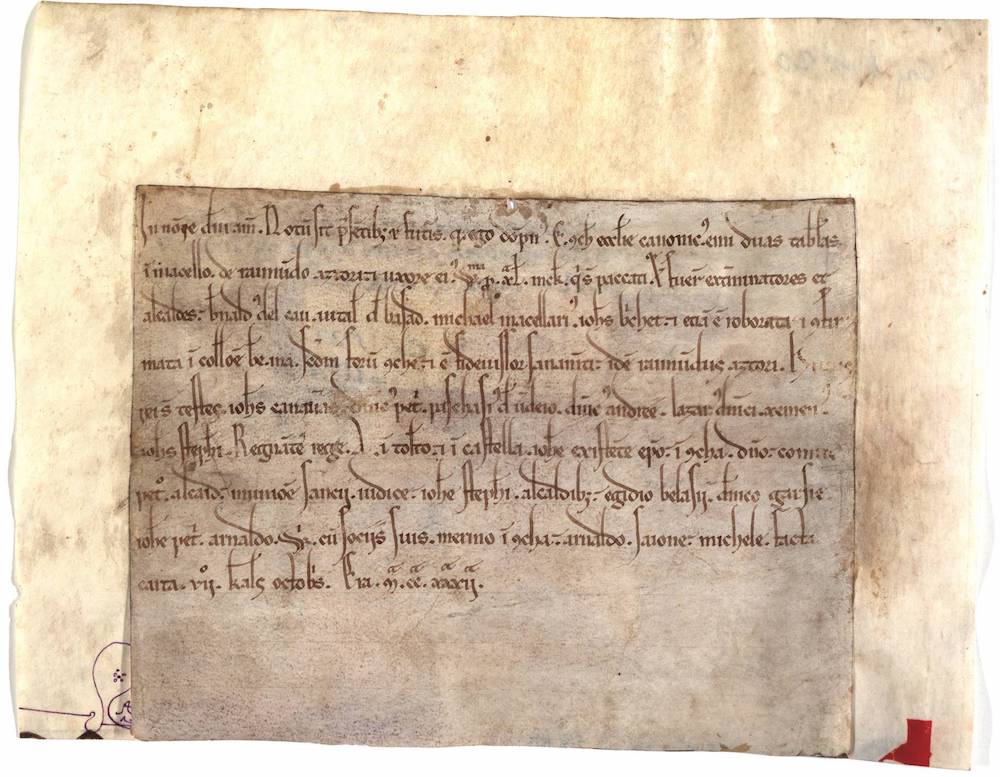 In nōīe dn̄i am̄. Notū sit p̄sētibȝ ⁊ futur̄is. q. ego dōpn᾿. E. ꝯch̄ eccl̄ie canonic᾿. emi duas tablas
ī macello. de raimūdo aztori ⁊ uxore ei᾿. p. xl. mck. q̄s paccati. fuer̄ extīmatores et
alcaldes. b̄nald᾿ del cau. uital d̄ basad. michael macellari᾿. ioh̄s b̄chet. ⁊ etiā ē roborata ⁊ ꝯfir
mata ī coll̄oe be. ma. sc̄dm forū ꝯche. ⁊ ē fideiussor saluam̄ti. idē raimūdus aztori. h
rei s̄ testes. ioh̄s pet᾿. paschasi᾿ dn̄ic᾿ andree. lazar᾿ dn̄ici. xemen
ioh̄s steph̄i. Regnāte rege. A. ī tol̄to. ⁊ ī castella. ioh̄e existēte ep̄o. ī ꝯcha. dūo. comite
pet᾿. alcaid. munioē sancii. iudice. ioh̄e steph̄i. alcaldibȝ. egidio belasii. dn̄ico garsie
ioh̄e pet᾿. arnaldo. cū sociis suis. merino ī ꝯcha. arnaldo. saione. michele. facta
carta. vii. kal̄s octob̄s. Era. Mª. ccª. xxxªiiª.